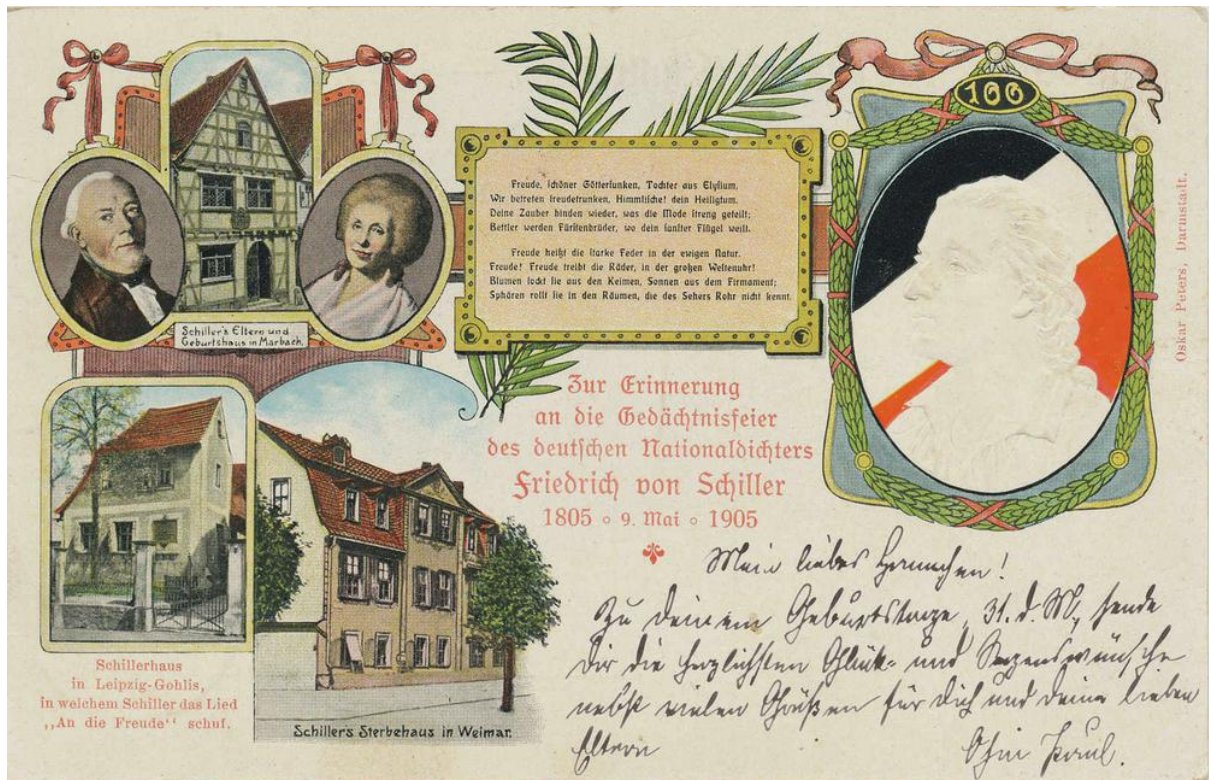 100
Schiller's Eltern und
Geburtshaus in Marbach.
Freude, ſchöner Götterfunken, Tochter aus Elyſium,
Wir betreten freudetrunken, Himmliſche! dein Heiligtum.
Deine Zauber binden wieder, was die Mode ſtreng geteilt;
Bettler werden Fürſtenbrüder, wo dein ſanfter Flügel weilt.
Freude heißt die ſtarke Feder in der ewigen Natur.
Freude! Freude treibt die Räder, in der großen Weltenuhr!
Blumen lockt ſie aus den Keimen, Sonnen aus dem Firmament;
Sphären rollt ſie in den Räumen, die des Sehers Rohr nicht kennt.
Oskar Peters, Darmstadt.
Zur Erinnerung
an die Gedächtnisfeier
des deutſchen Nationaldichters
Friedrich von Schiller
1805 ∘ 9. Mai ∘ 1905
Schillerhaus
in Leipzig-Gohlis,
in welchem Schiller das Lied
„An die Freude“ schuf.
Schillers Sterbehaus in Weimar.
Mein liebes Hannchen!
Zu deinem Geburtstage, 31. d. M., sende
Dir die herzlichsten Glück- und Segenswünsche
nebst vielen Grüßen für Dich und deine lieben
Eltern Ohm Paul.